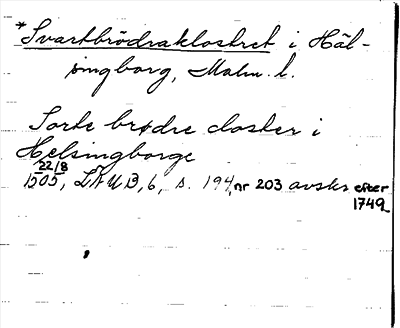 *Svartbrödraklostret i Häl-
singborg, Malm. l.
Sorte brødre closter i
Helsingborge
22/8
1505, LÄUB, 6, s. 194, nr 203 avskr efter
1749